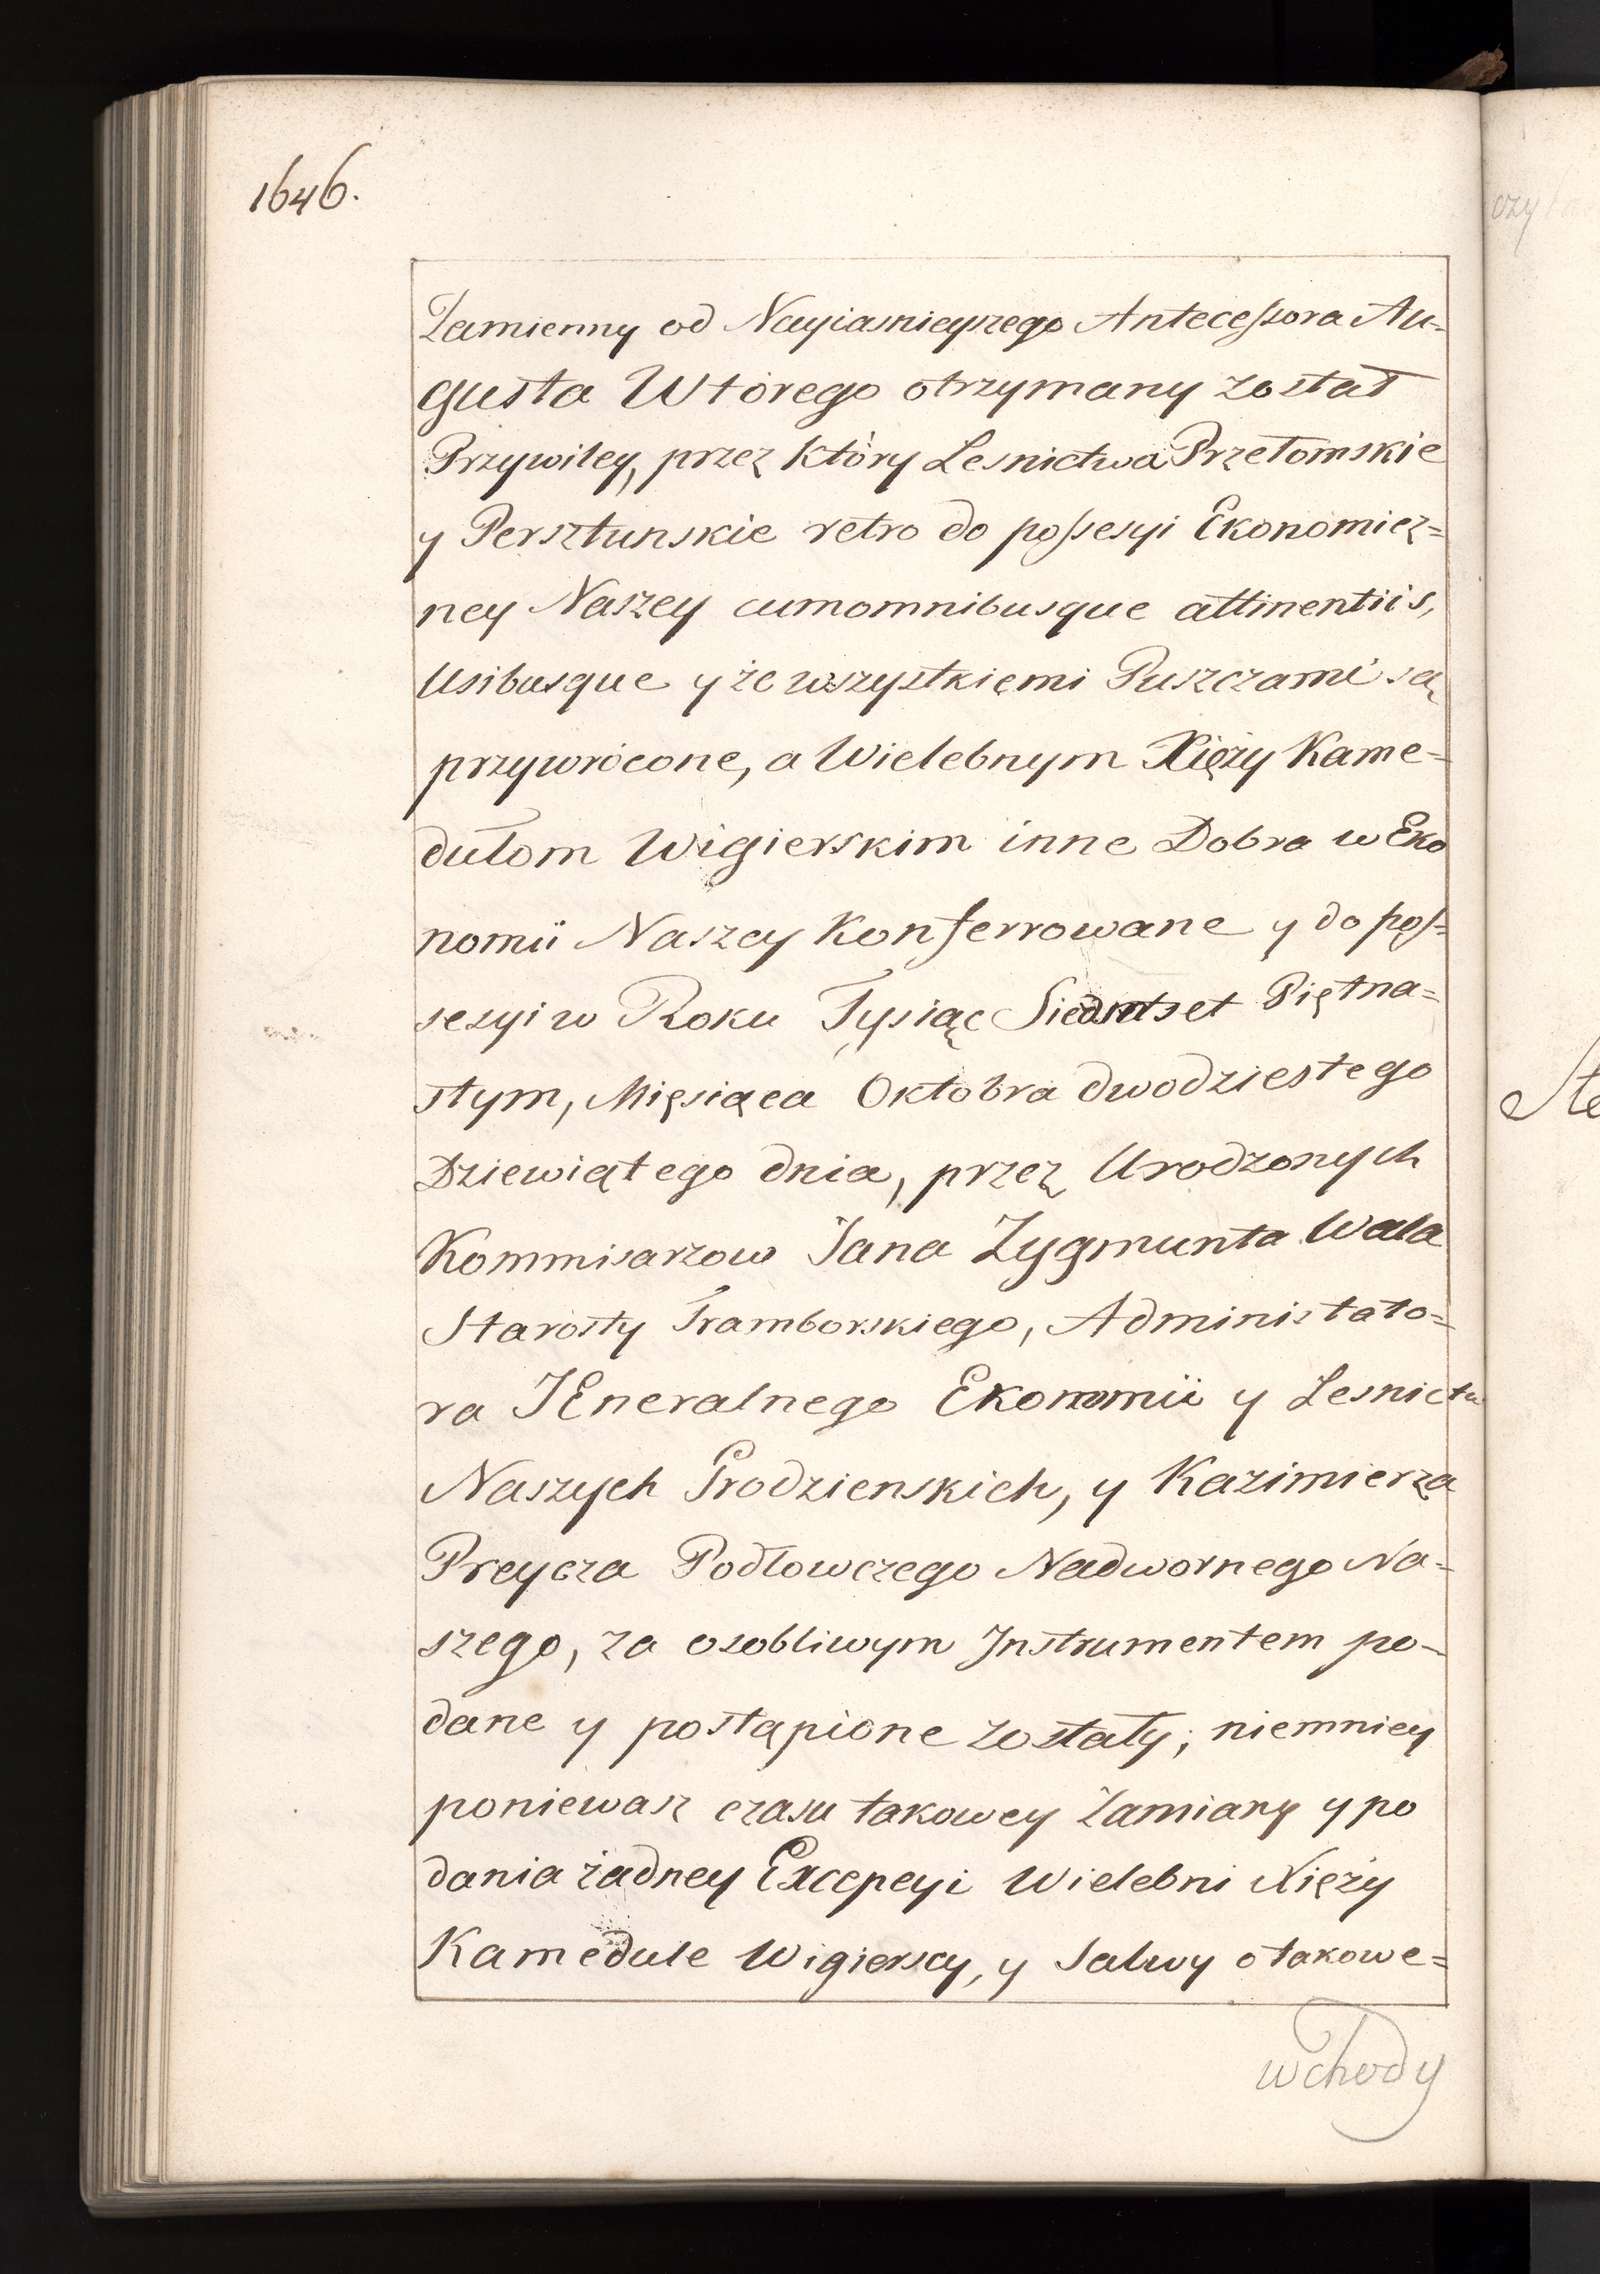 1646.
Zamienny od Nayiasnieyszego Antecessora Au=
gusta Wtorego otrzymany został
Przywiley, przez który Lesnictwa Przełomskie
y Persztunskie retro do possesyi Ekonomicz=
ney Naszey cumomnibusque attinentiis,
Usibusque y ze wszystkięmi Puszczami są
przywrócone, a Wielebnym Xięży Kame=
dułom Wigierskim inne Dobra w Eko
nomii Naszey Konferrowane y do pos=
sesyi w Roku Tysiąc Siedmset Piętna=
stym, Mięsiąca Oktobra dwodziestego
Dziewiątego dnia, przez Urodzonych
Kommisarzow Jana Zygmunta Wala
Starosty Tramborskiego, Administato=
ra JEneralnego Ekonomii y Lesnictw
Naszych Grodzienskich, y Kazimierza
Preycza Podłowczego Nadwornego Na=
szego, za osobliwym Jnstrumentem po=
dane y postąpione zostały; niemniey
poniewasz czasu takowey Zamiany y po
dania żadney Excepcyi Wielebni Xięży
Kamedule Wigierscy, y Salwy o takowe=
wchody